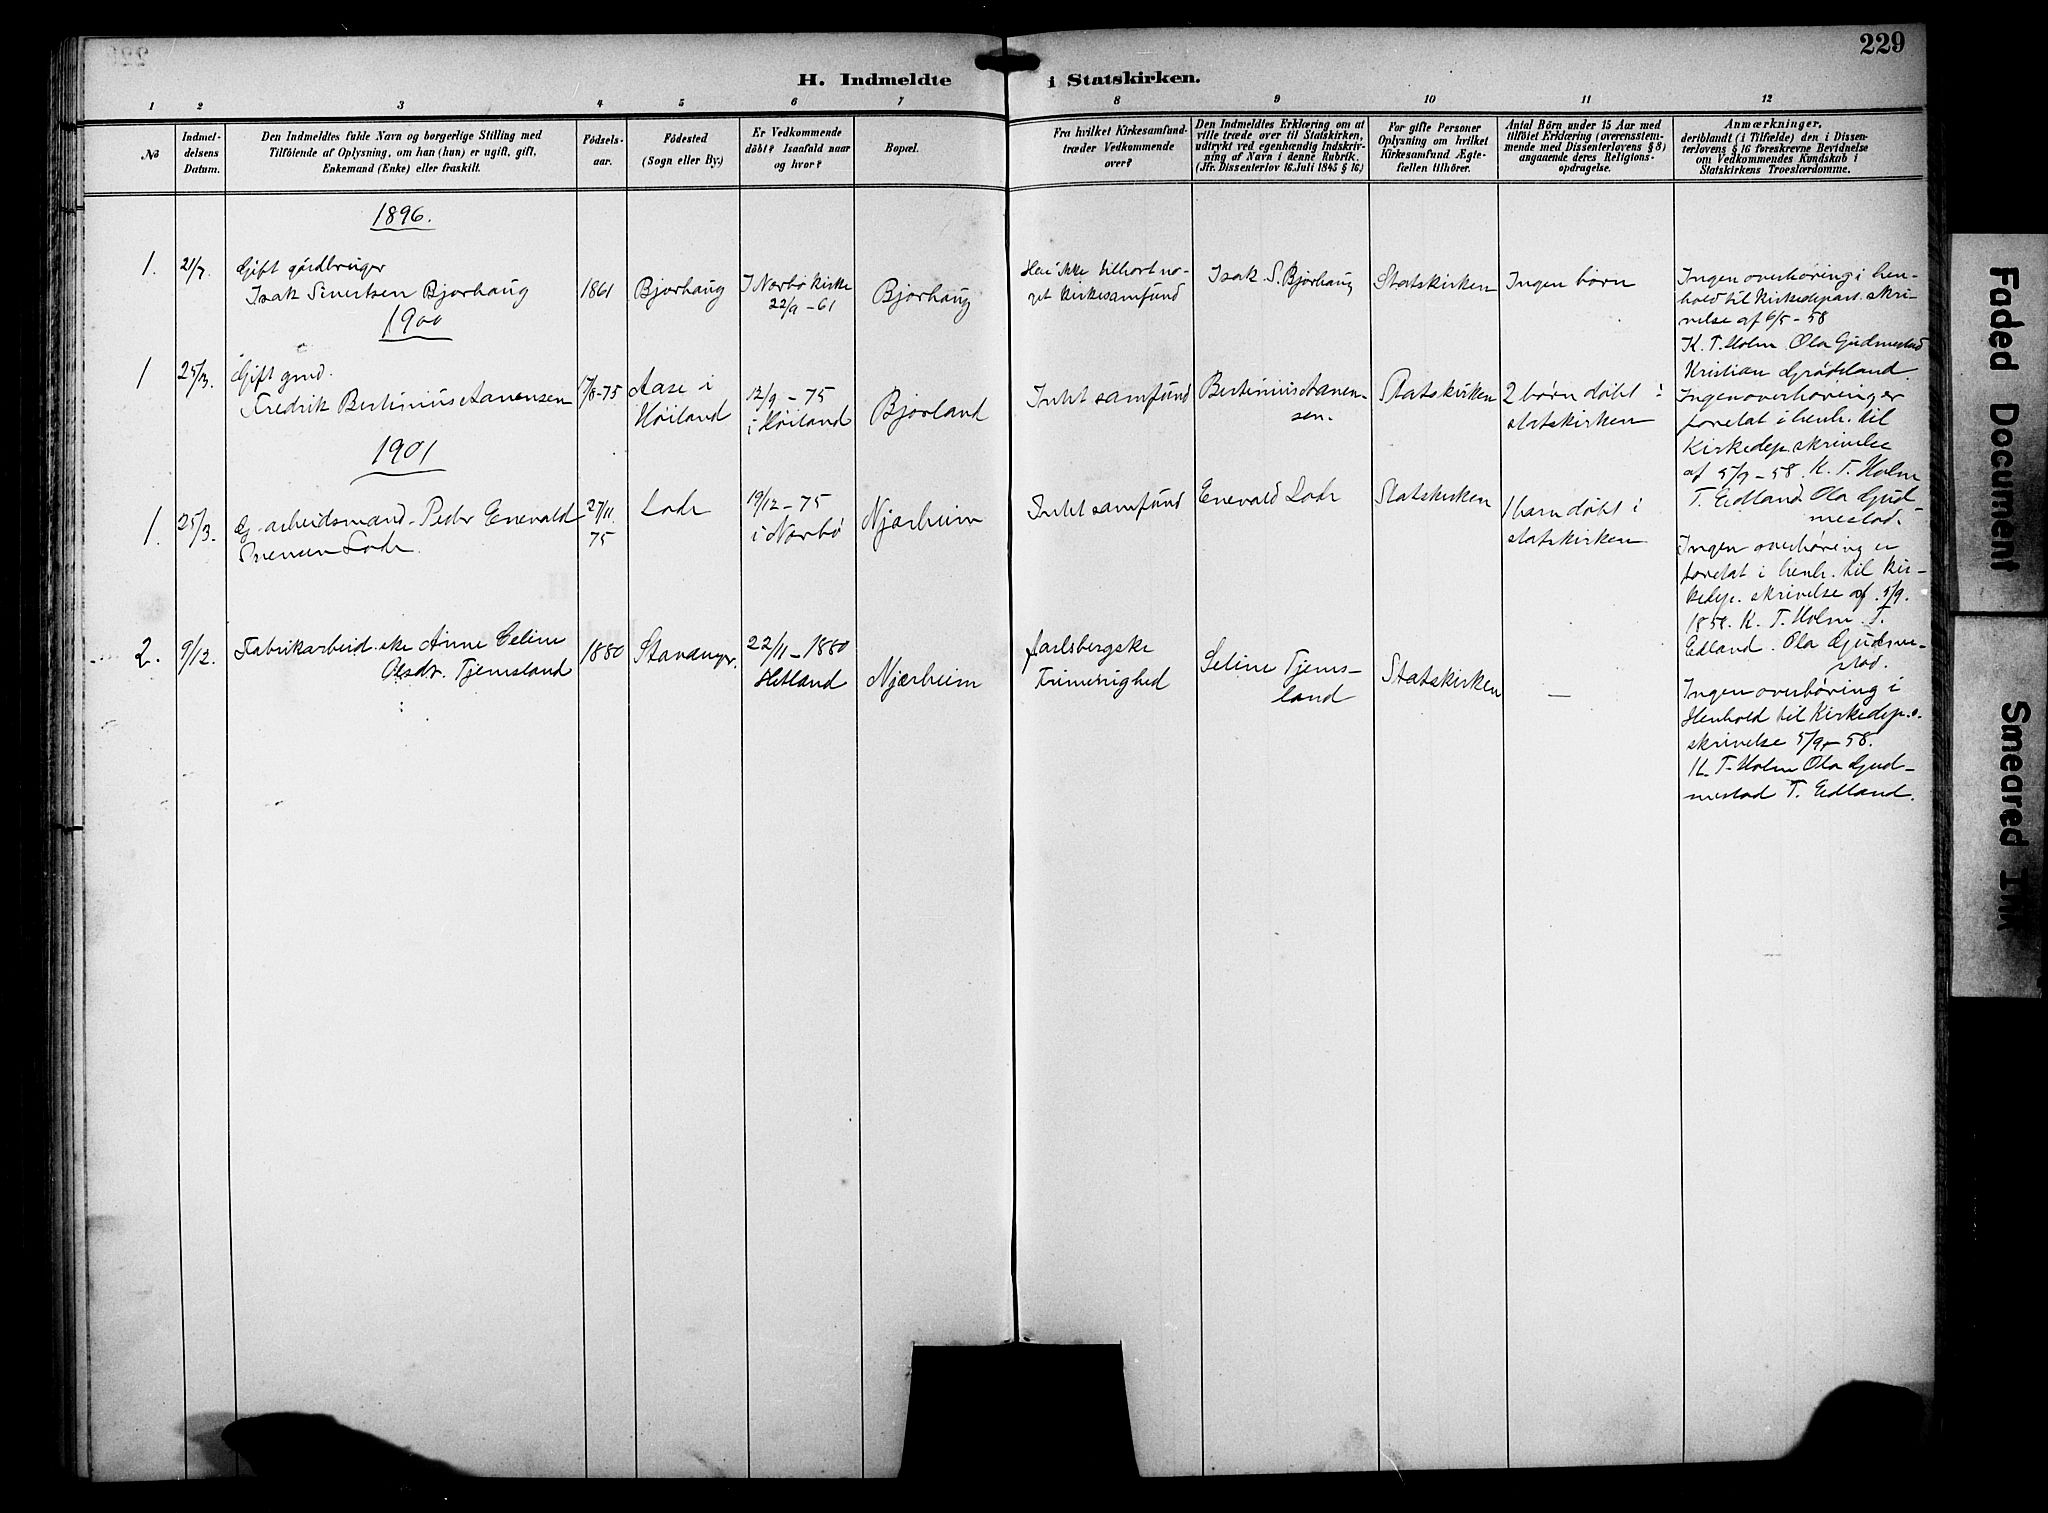 229
H. Indmeldte i Statskirken.
1 2 3 4 5 6 7 8 9 10 11 12
No
Indmel-
delsens
Datum.
Den Indmeldtes fulde Navn og borgerlige Stilling med
Tilföiende af Oplysning, om han (hun) er ugift, gift,
Enkemand (Enke) eller fraskilt.
Födsels-
aar.
Födested
(Sogn eller By.)
Er Vedkommende
döbt? Isaafald naar
og hvor?
Bopæl.
Fra hvilket Kirkesamfund
træder Vedkommende
over?
Den Indmeldtes Erklæring om at
ville træde over til Statskirken,
udtrykt ved egenhændig Indskriv-
ning af Navn i denne Rubrik.
(Jfr. Dissenterlov 16 Juli 1845 § 16.)
For gifte Personer
Oplysning om hvilket
Kirkesamfund Ægte-
fællen tilhörer.
Antal Börn under 15 Aar med
tilföiet Erklæring (overensstem-
mende med Dissenterlovens § 8)
angaaende deres Religions-
opdragelse.
Anmærkninger,
deriblandt (i Tilfælde) den i Dissen-
terlovens § 16 foreskrevne Bevidnelse
om Vedkommendes Kundskab i
Statskirkens Troeslærdomme.
1896.
1.
21/7.
Gift gårdbruger
Isak Sivertsen Bjorhaug
1861
Bjorhaug
I Nærbø kirke
22/9 - 61
Bjorhaug
ikke tilhørt no-
get kirkesamfund
Isak S. Bjørhaug
Statskirken
Ingen børn
Ingen overhøring i hen-
hold til Kirkedepart. skri-
velse af 6/5 - 58
K. T. Holm Ola Gudmestad
Kristian Grødeland.
1900
1
25/3.
Gift gmd.
Fredrik Bertinius Aanensen
17/8-75
Aase i
Høiland
12/9 - 75
i Høiland
Bjorland
Intet samfund
Bertinius Aanen-
sen.
Statskirken
2 børn døbt i
statskirken
Ingen overhøringer
foretat i henh. til
Kirkedep. skrivelse
af 5/9 - 58. K. T. Holm
T. Edland. Ola Gud-
mestad.
1901
1.
25/3.
G. arbeidsmand Peder Enevald
Lode.
27/11
75
Lode
19/12 - 75
i Nærbø
Njærheim
Intet samfund
Enevald Lode
Statskirken
1 barn døbt i
statskirken
Ingen overhøring er
foretat i henh. til Kir-
kedep. skrivelse af 5/9.
1858. K. T. Holm. T.
Edland. Ola Gudme-
stad.
2.
9/12.
Fabrikarbeid.ske Anne Celine
Olsdr. Tjemsland
1880
Stavanger.
22/11 - 1880
Hetland
Njærheim
Jarlsbergske
Frimenighed
Seline Tjems-
land
Statskirken
—
Ingen overhøring i
Henhold til Kirkedep.s.
skrivelse 5/9 - 58.
K. T. Holm Ola Gud-
mestad T. Edland.
Faded Document
Smeared Ink